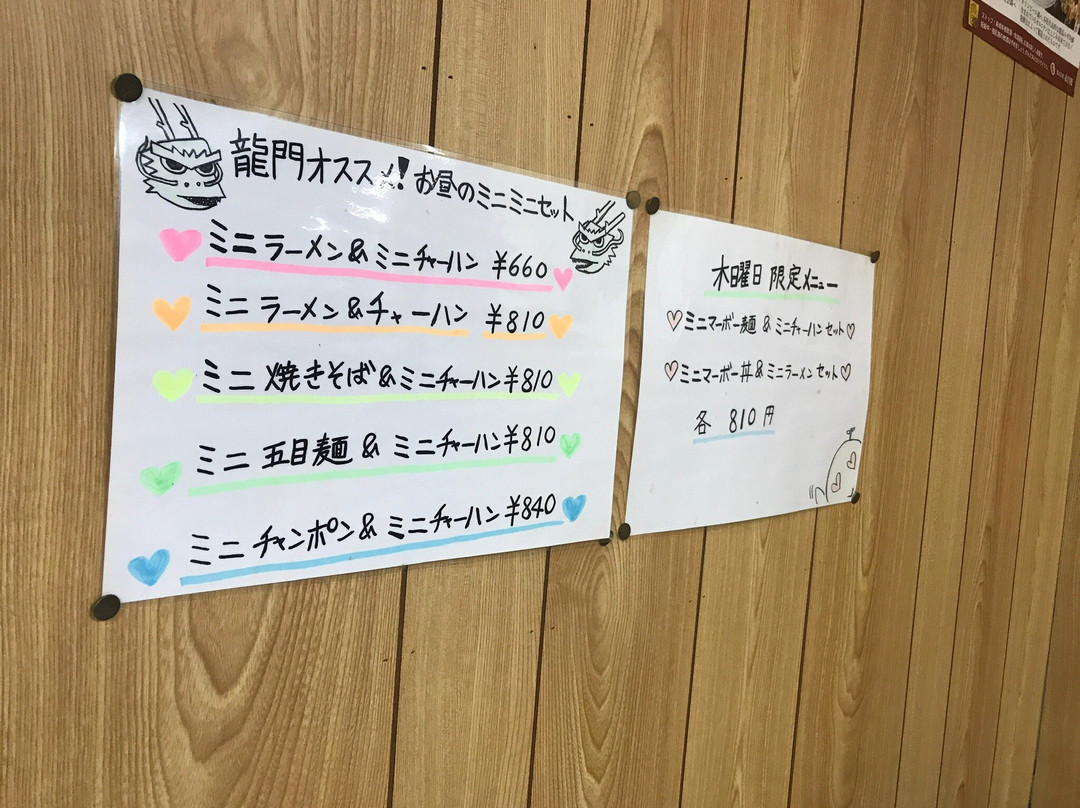 龍門オススメ!お昼のミニミニセット
ミニラーメン&ミニチャーハン ¥660
ミニ ラーメン&チャーハン ¥810
ミニ 焼きそば&ミニチャーハン¥810
ミニ 五目麺 & ミニチャーハン¥810
ミニ チャンポン& ミニチャーハン¥840
木曜日 限定メニュー
ミニマーボー麺 & ミニチャーハンセット
ミニマーボー丼&ミニラーメンセット
各 810円